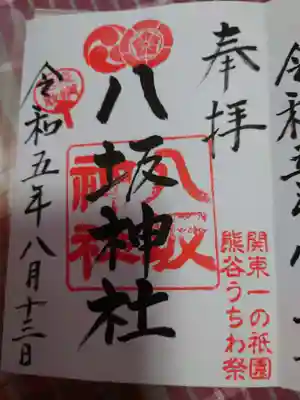 奉拝
八坂神社
八坂神社
令和五年八月十三日
関東一の祇園
熊谷うちわ祭